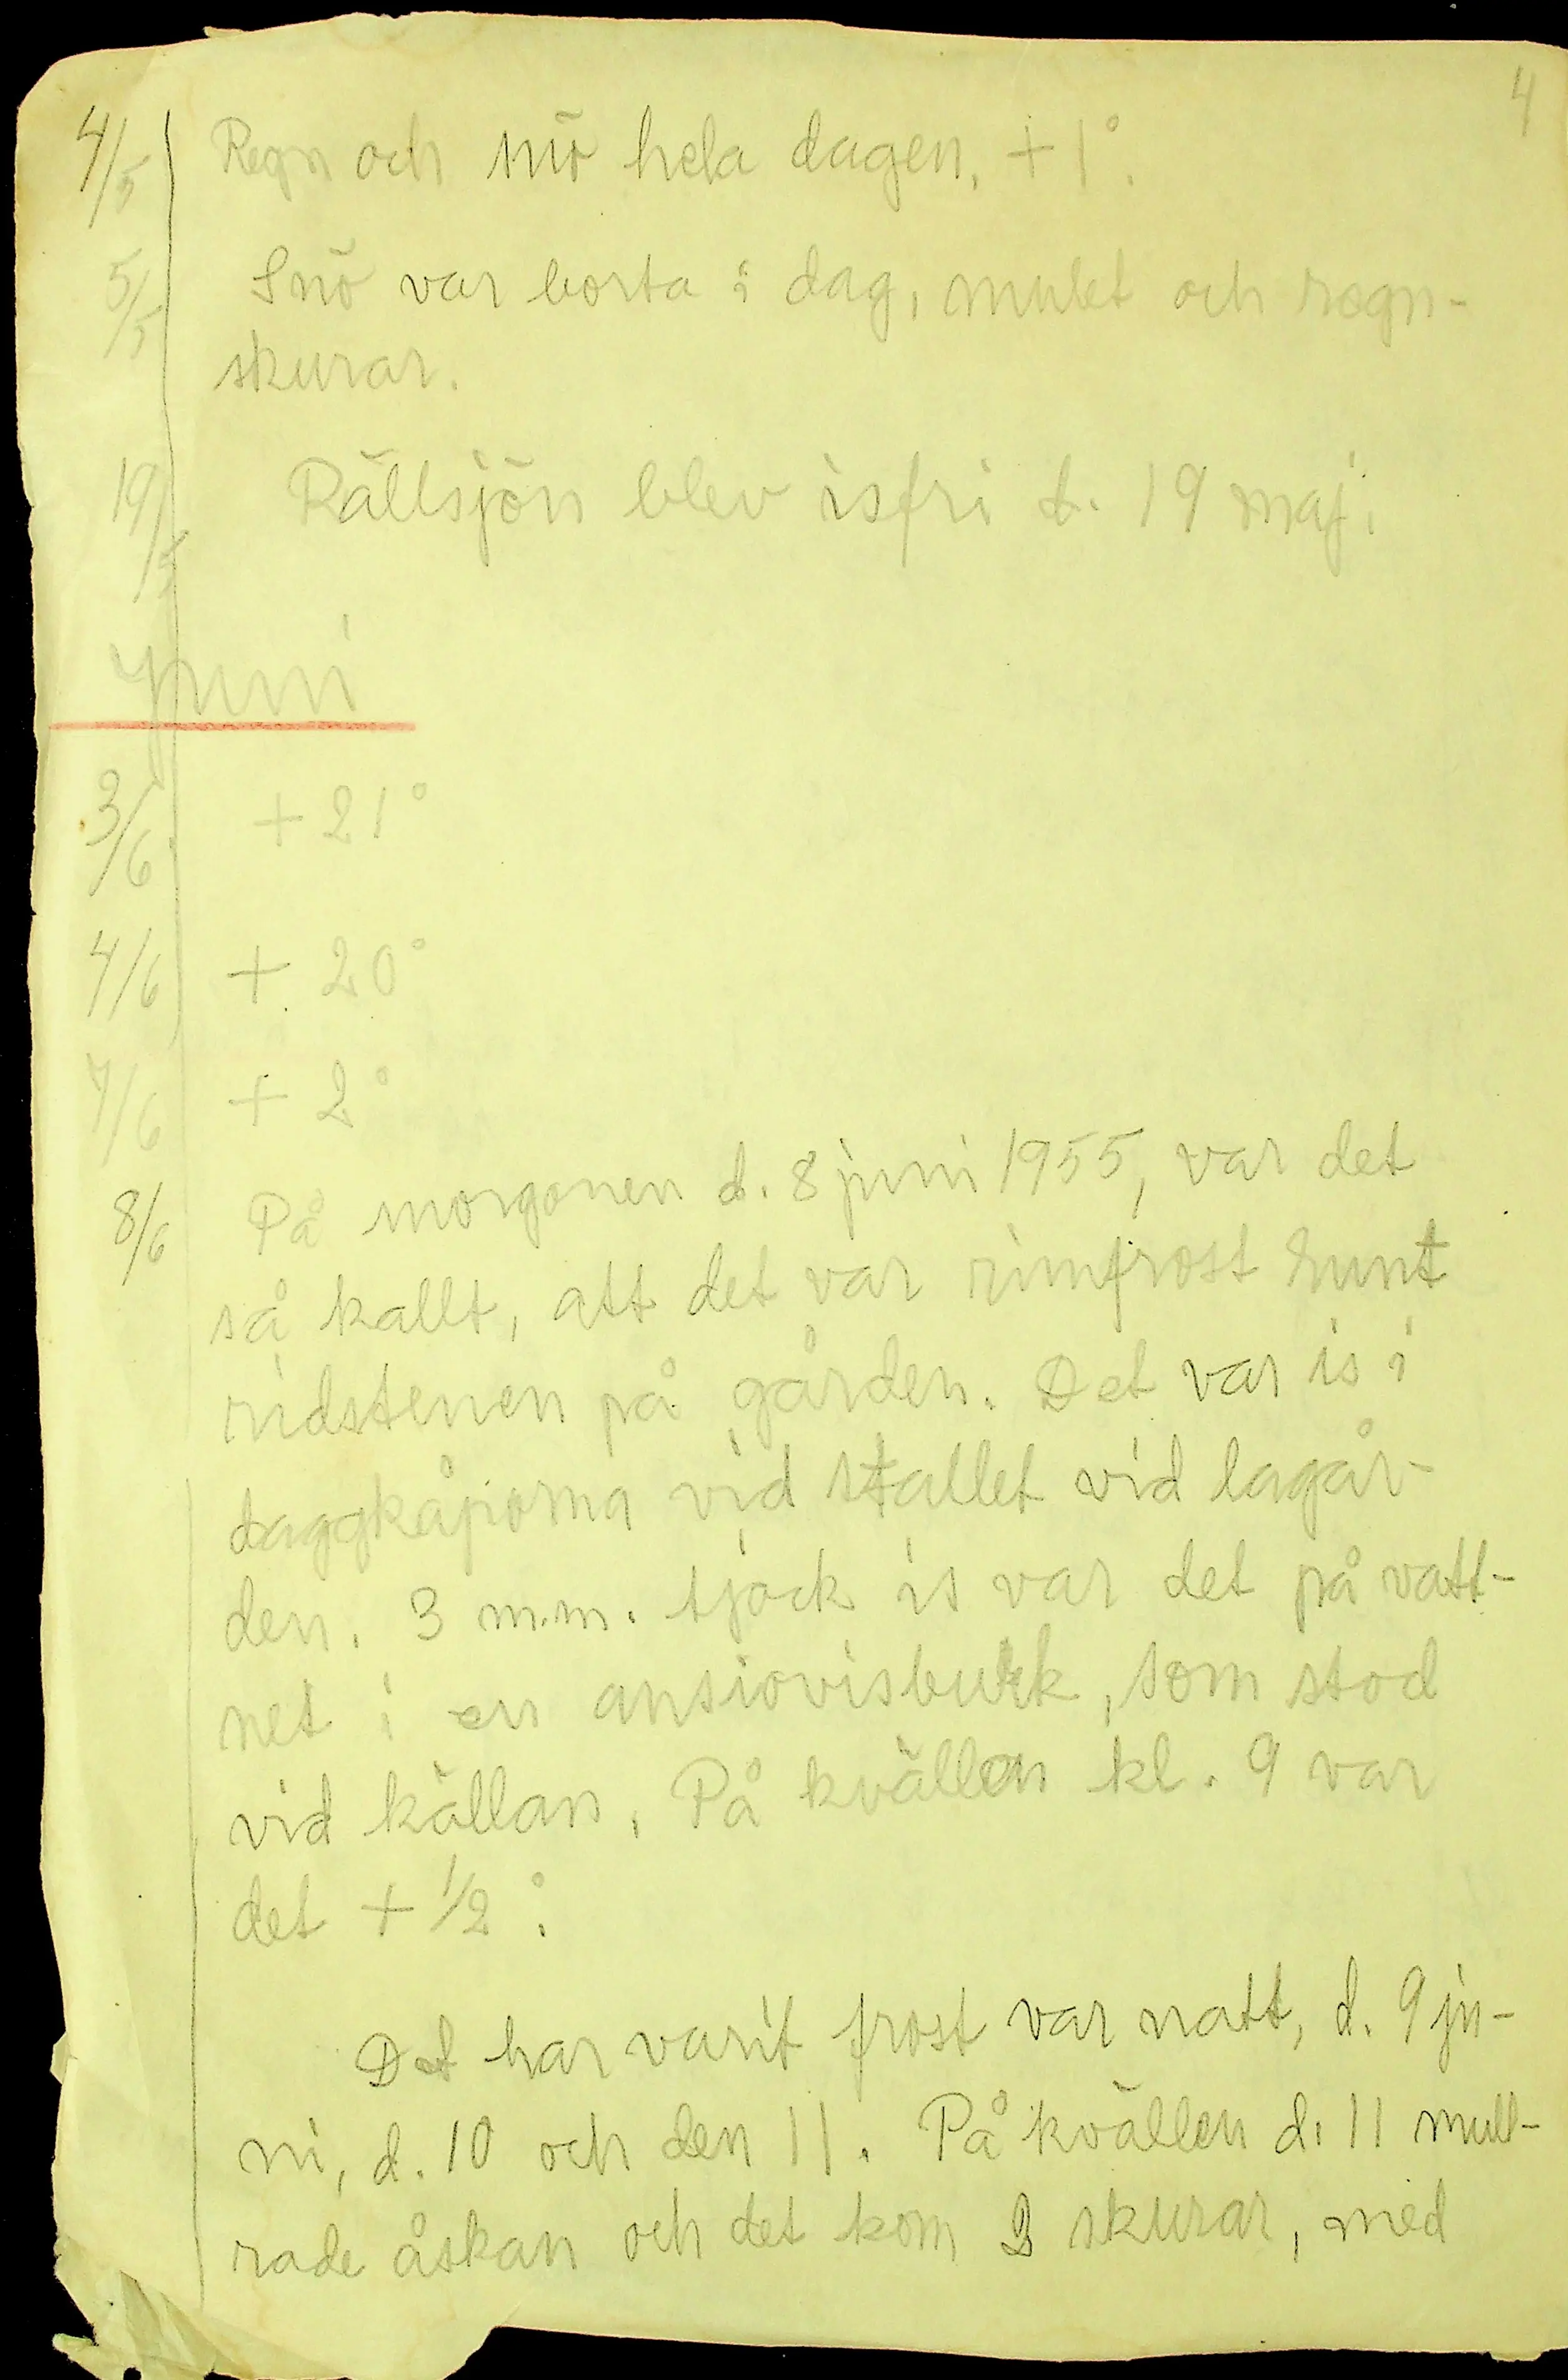 4
4/5 Regn och snö hela dagen, +1°.
5/5 Snö var borta i dag, mulet och regn-
skurar.
19/5 Rällsjön blev isfri d. 19 maj.
Juni
3/6 +21°
4/6 + 20°
7/6 + 2°
8/6 På morgonen d. 8 juni 1955, var det
så kallt, att det var rimfrost runt
ridstenen på gården. Det var is i
daggkåporna vid stallet vid lagår-
den. 3 m.m. tjock is var det på vatt-
net i en ansiovisburk, som stod
vid källan. På kvällen kl. 9 var
det + 1/2°.
Det har varit frost var natt, d. 9 ju-
ni, d. 10 och den 11. På kvällen d. 11 mull-
rade åskan och det kom skurar, med